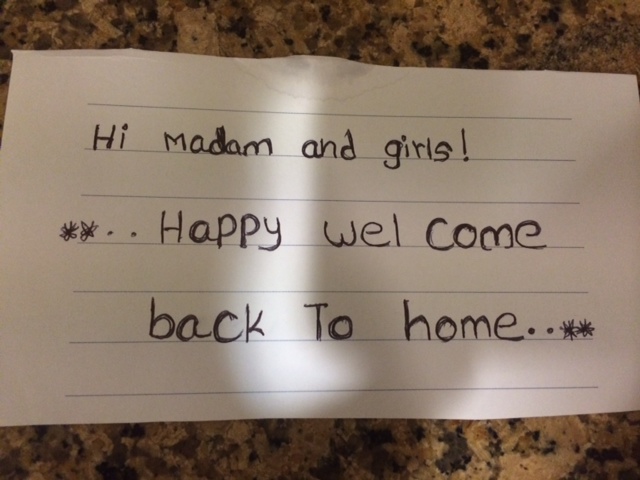 Hi Madam and girls!
**.. Happy wel come
back To home..**